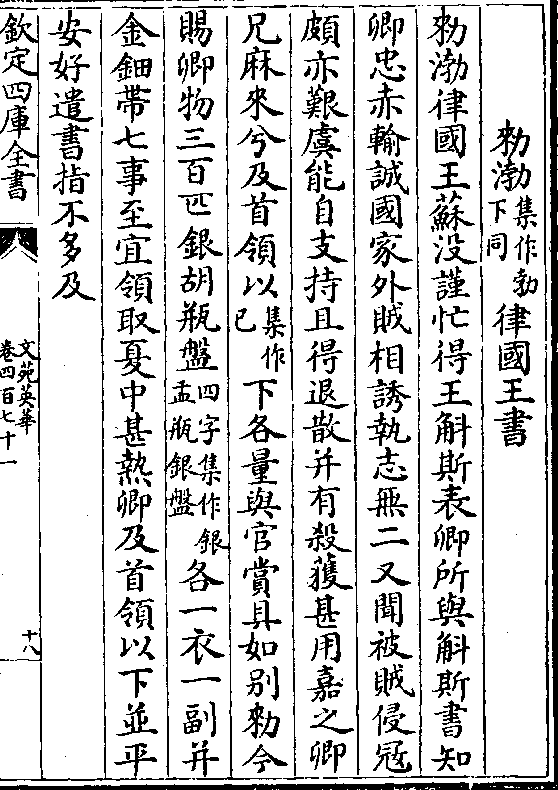 勑渤集作勃下同律國王書
勑渤律國王蘇没謹忙得王斛斯表卿所與斛斯書知
卿忠赤輸誠國家外賊相誘執志無二又聞被賊侵冦
頗亦艱虞能自支持且得退散并有殺獲甚用嘉之卿
兄麻來兮及首領以集作已下各量與官賞具如别勑今
賜卿物三百匹銀胡瓶盤四字集作銀盂瓶銀盤各一衣一副并
金鈿帶七事至宜領取夏中甚熱卿及首領以下並平
安好遣書指不多及
欽定四庫全書
文苑英華
卷四百七十一
十八